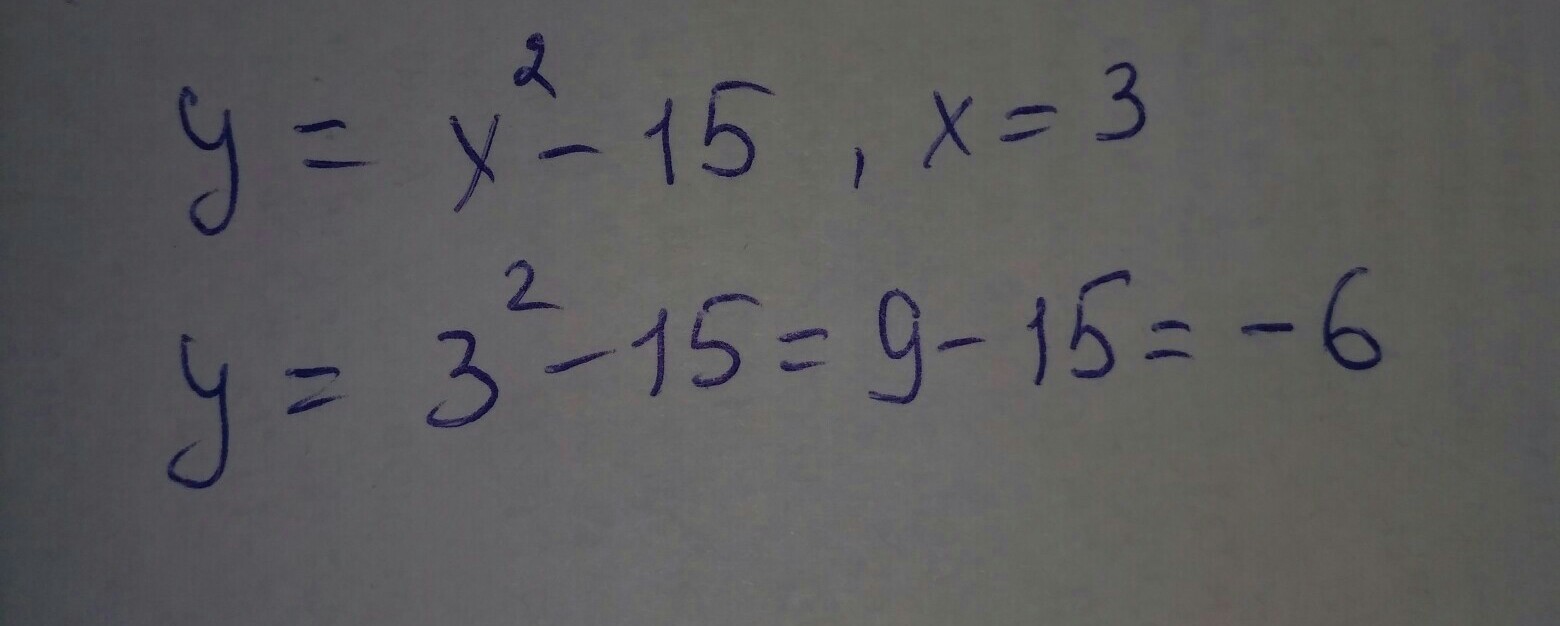 y = x² - 15 , x = 3
y = 3² - 15 = 9 - 15 = - 6